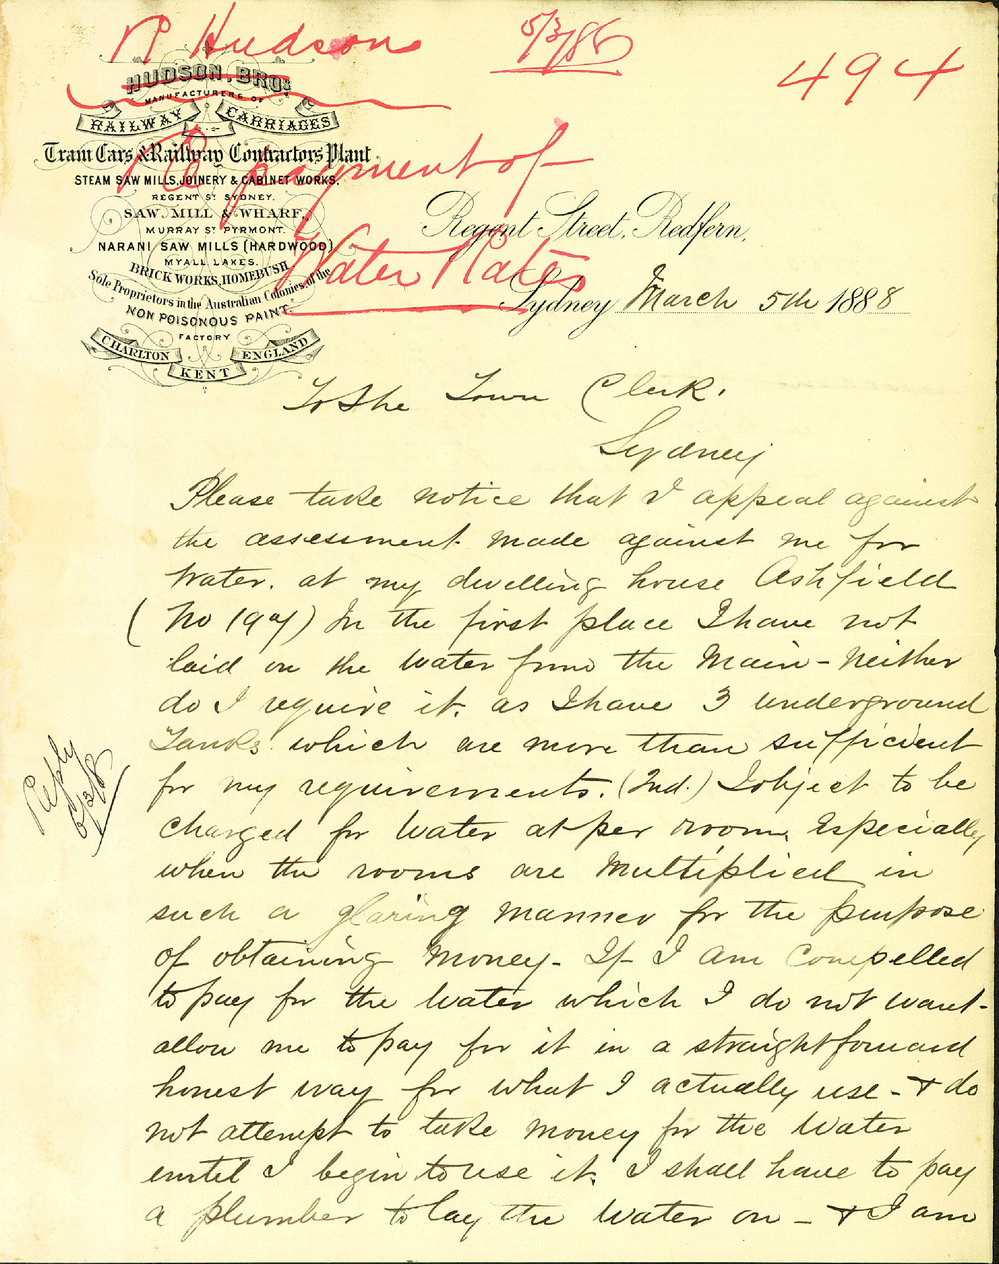 R Hudson
5/3/86
494
HUDSON, BROS
MANUFACTURERS OF
RAILWAY CARRIAGES
Tram Cars & Railway Contractors Plant
Re payment of
STEAM SAW MILLS, JOINERY & CABINET WORKS.
REGENT ST SYDNEY.
SAW MILL & WHARF,
MURRAY ST PYRMONT.
Regent Street, Redfern,
NARANI SAW MILLS (HARDWOOD)
MYALL LAKES.
Water Rates
BRICK WORKS, HOMEBUSH
Sole Proprietors in the Australian Colonies, of the
NON POISONOUS PAINT.
Sydney March 5th 1888
FACTORY
CHARLTON KENT ENGLAND
To The Town Clerk.
Sydney
Please take notice that I appeal against
the assessment made against me for
Water. at my dwelling house Ashfield
(No 197) In the first place I have not
laid on the water from the Main - Neither
do I require it. as I have 3 underground
Tanks. which are more than sufficient
for my requirements. (2nd.) I object to be
charged for Water at per room, Especially
when the rooms are Multiplied in
such a glaring manner for the purpose
of obtaining Money - If I am compelled
to pay for the Water which I do not want -
allow me to pay for it in a straightforward
honest way for what I actually use - & do
not attempt to take money for the Water
until I begin to use it. I shall have to pay
a plumber to lay the Water on - & I am
Reply
6/3/8